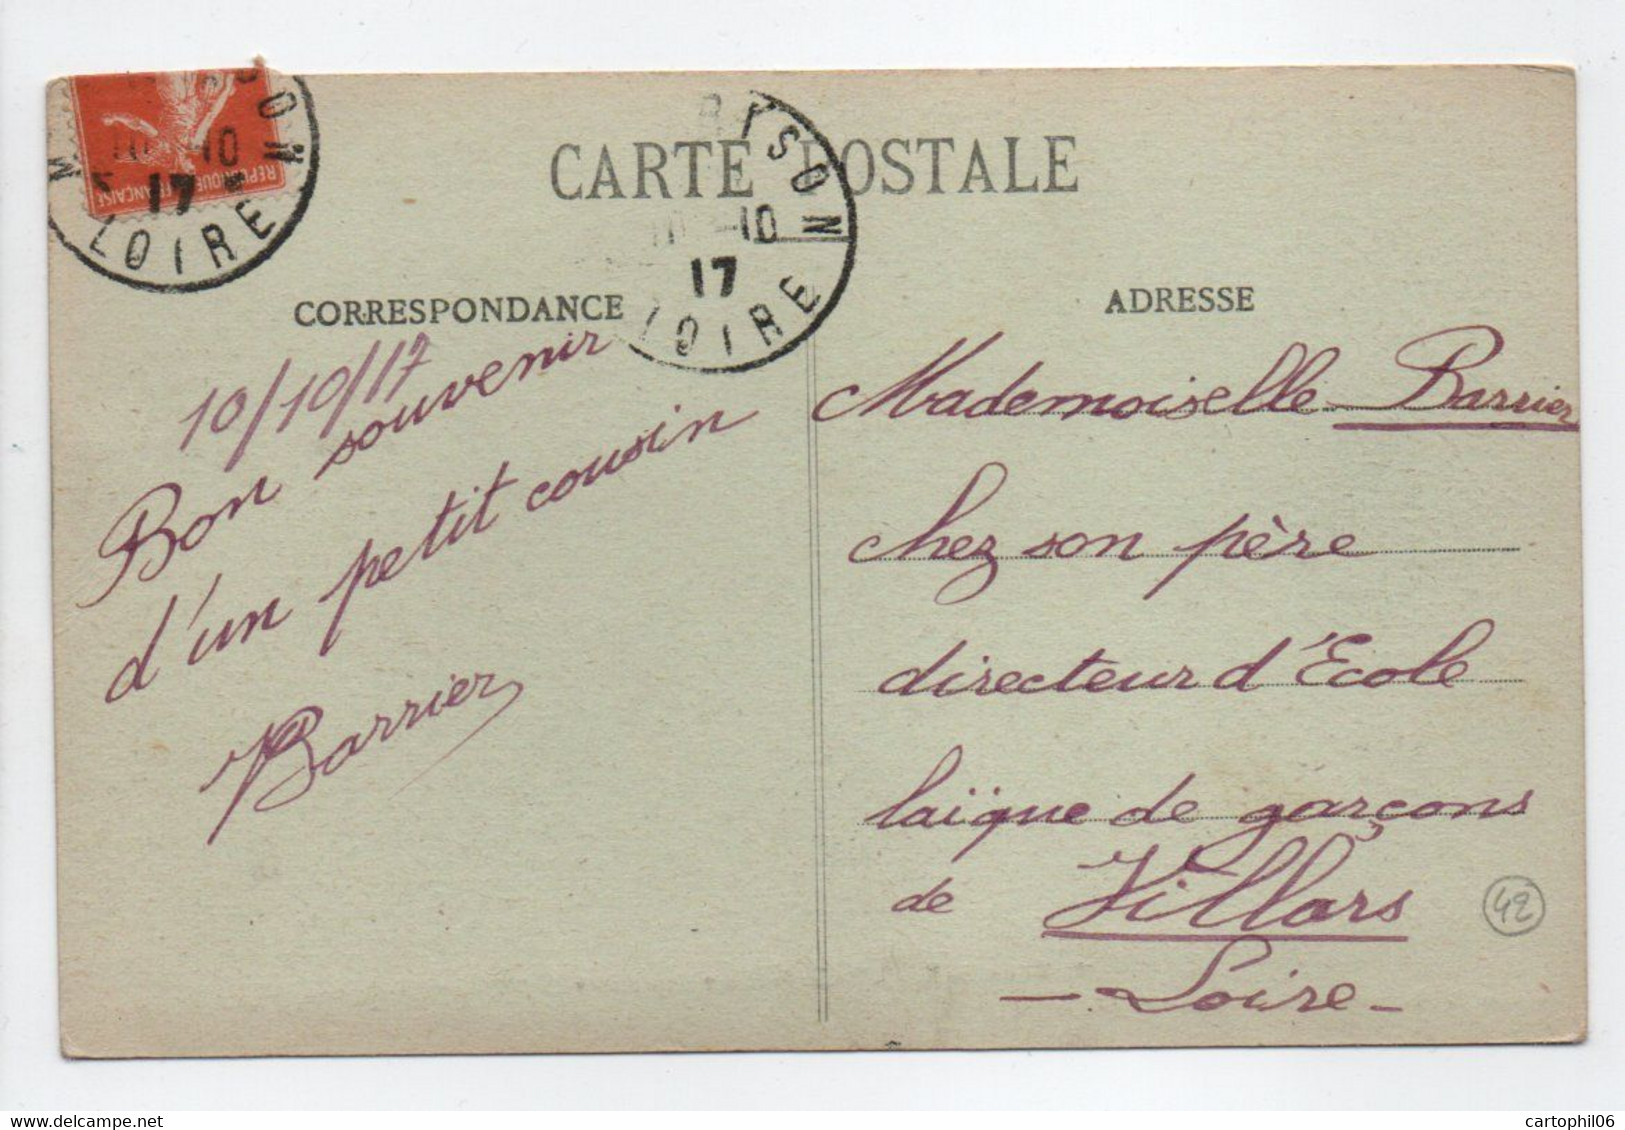 CARTE POSTALE
RYSON
10 -10
17
LOIRE
REPUBLIQUE FRANÇAISE
10 -10
17
LOIRE
CORRESPONDANCE
10/10/17
Bon souvenir
d'un petit cousin
Barrier
ADRESSE
Mademoiselle Barrier
chez son père
directeur d'Ecole
laïque de garçons
de Villars
- Loire -
42
cartophil06